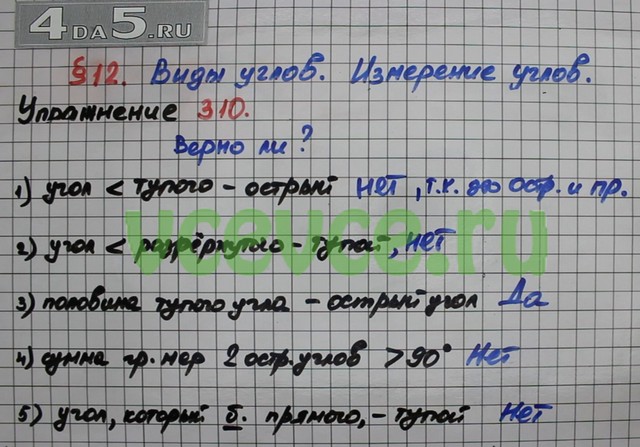 4DA5.RU
§12. Виды углов. Измерение углов.
Упражнение 310.
Верно ли?
1) угол < тупого - острый нет, т.к. это остр. и пр.
2) угол < развёрнутого - тупой, нет
3) половина тупого угла - острый угол Да
4) сумма гр. мер 2 остр. углов > 90° Нет
5) угол, который б. прямого, - тупой Нет
vcevce.ru